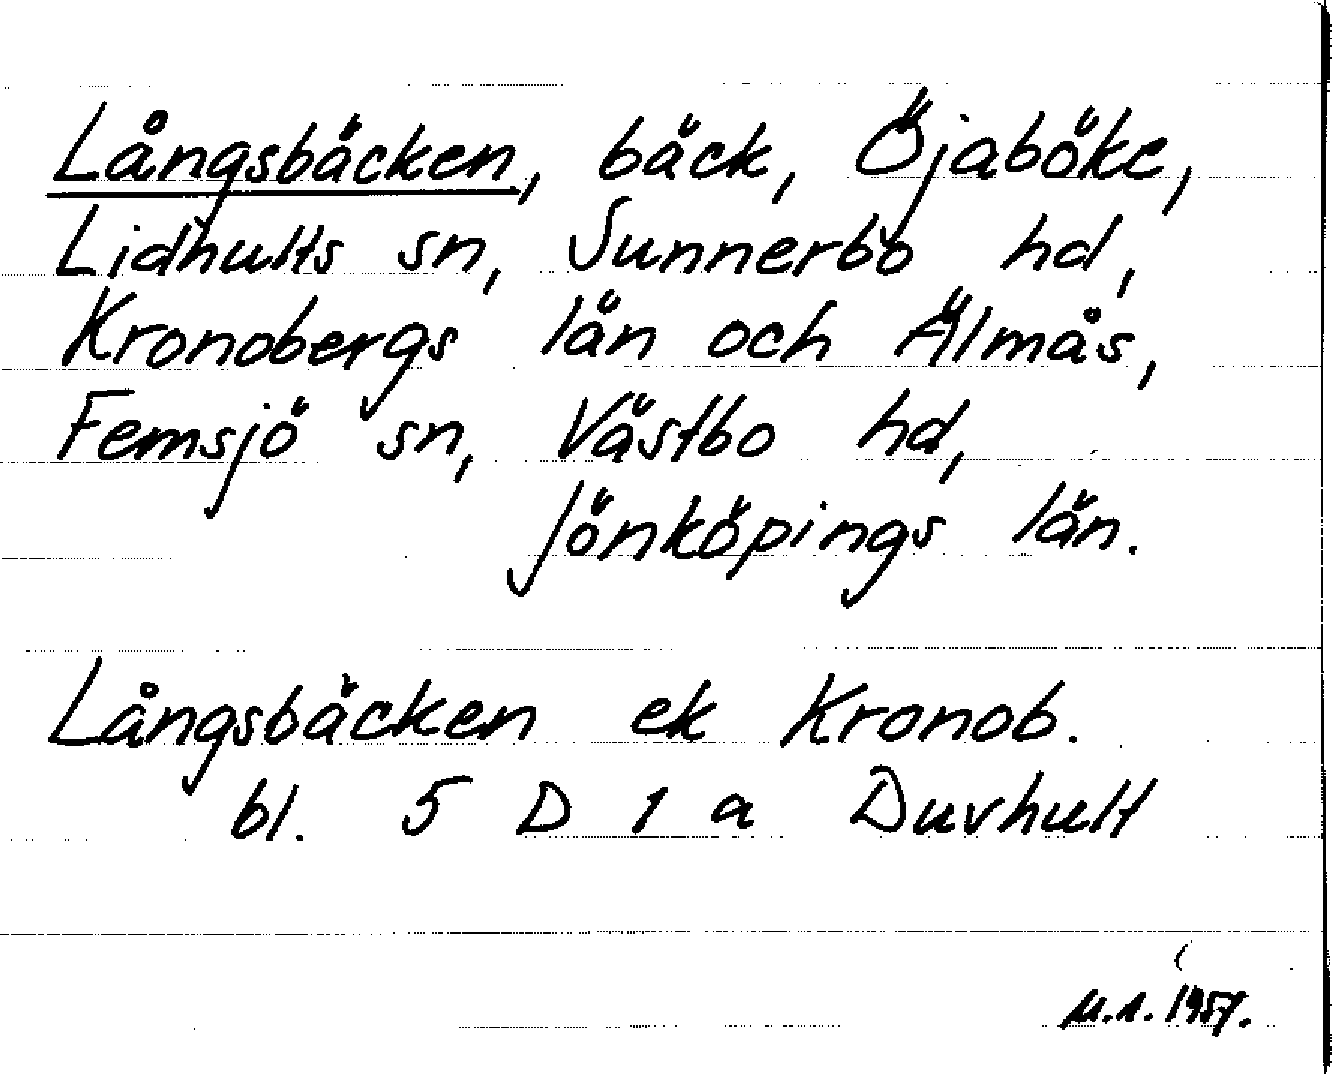 Långsbäcken, bäck, Öjaböke,
Lidhults sn, Sunnerbo hd,
Kronobergs län och Älmås,
Femsjö sn, Västbo hd,
Jönköpings län.
Långsbäcken ek Kronob.
bl. 5 D 1 a Duvhult
1957.